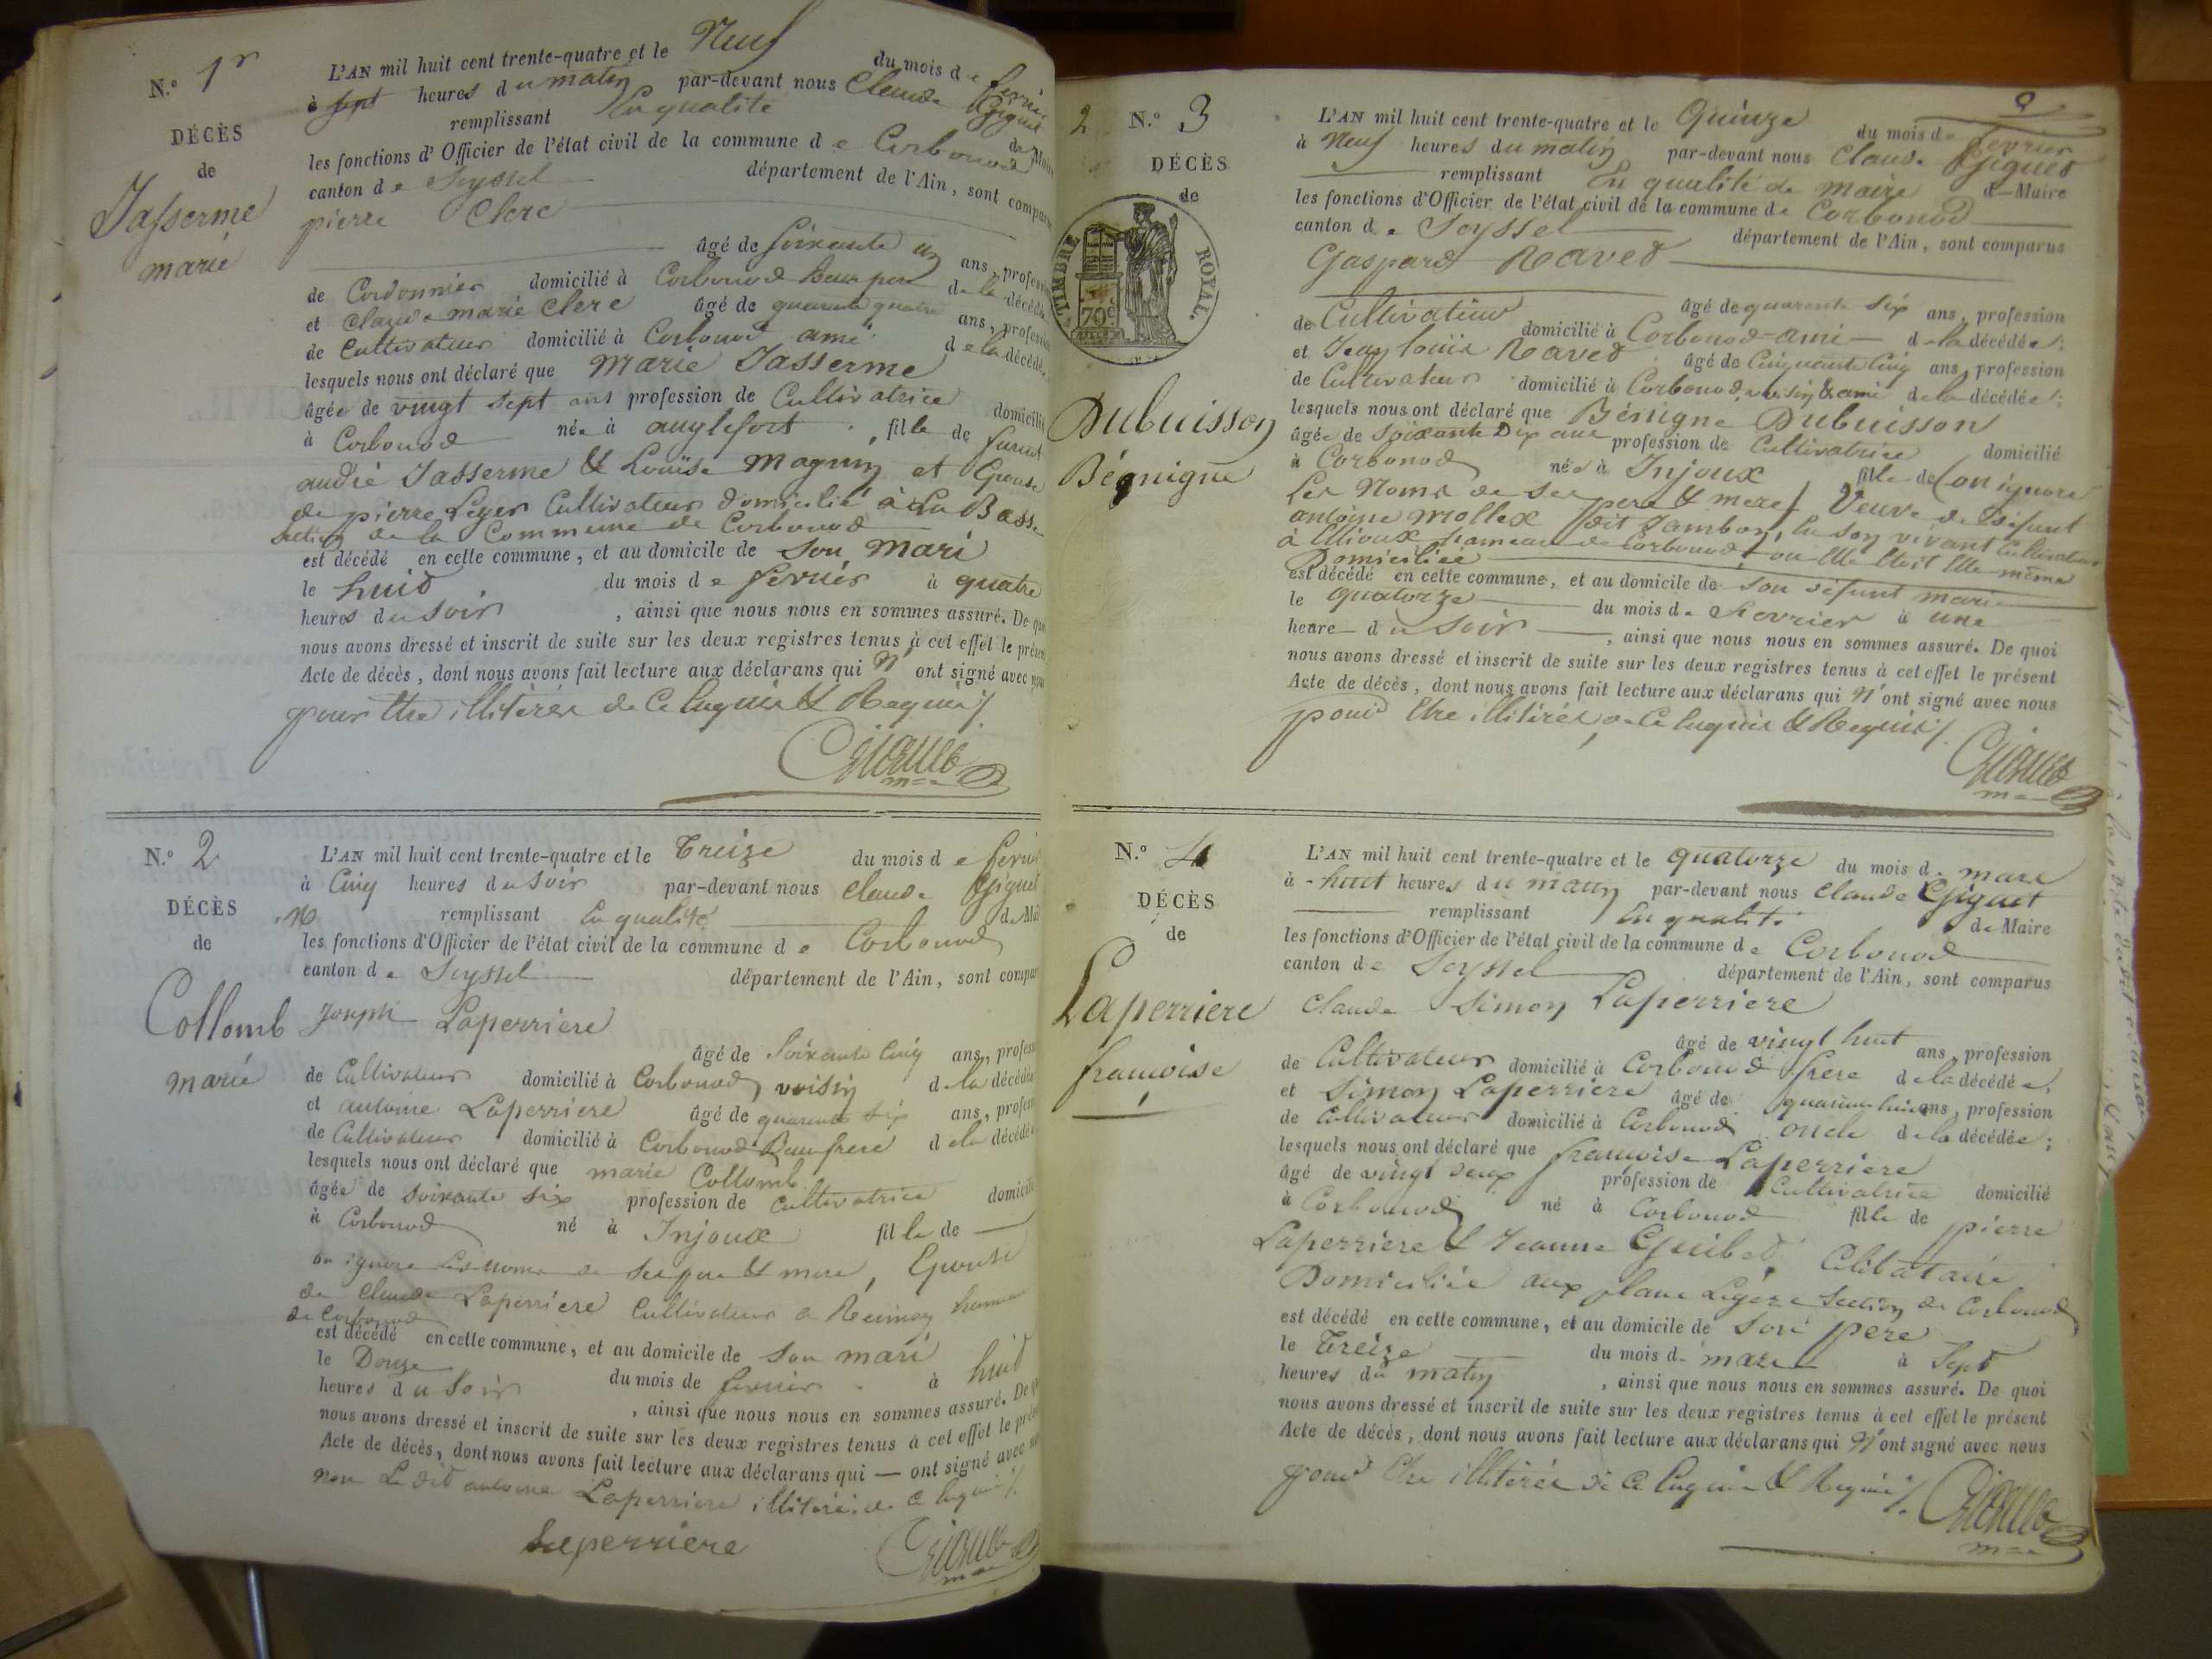 N.º 1r
DÉCÈS
de
Jasserme
marie
L'AN mil huit cent trente-quatre et le Neuf du mois de fevrier
à sept heures du matin par-devant nous Claude Giguet
remplissant En qualité de Maire
les fonctions d'Officier de l'état civil de la commune de Corbonod
canton de Seyssel département de l'Ain, sont comparus
pierre Clerc
âgé de soixante un ans, profession
de Cordonnier domicilié à Corbonod Beau pere de la décédée
et Claude marie Clerc âgé de quarante quatre ans, profession
de Cultivateur domicilié à Corbonod ami de la décédée
lesquels nous ont déclaré que Marie Jasserme
âgée de vingt sept ans profession de Cultivatrice domicilié
à Corbonod née à anglefort fille de furent
andré Jasserme & Louise Magnin et Epouse
de pierre Leger Cultivateur domicilié à La Basse
section de la Commune de Corbonod
est décédé en cette commune, et au domicile de son mari
le huid du mois de fevrier à quatre
heures du soir, ainsi que nous nous en sommes assuré. De quoi
nous avons dressé et inscrit de suite sur les deux registres tenus à cet effet le présent
Acte de décès, dont nous avons fait lecture aux déclarans qui N'ont signé avec nous
pour Etre illitérés de Ce Enquis & Requis
Giguet
N.º 2
DÉCÈS
de
Collomb
marie
L'AN mil huit cent trente-quatre et le Treize du mois de fevrier
à Cinq heures du soir par-devant nous Claude Giguet
remplissant En qualité de Maire
les fonctions d'Officier de l'état civil de la commune de Corbonod
canton de Seyssel département de l'Ain, sont comparus
Joseph Laperriere
âgé de Soixante Cinq ans, profession
de Cultivateur domicilié à Corbonod voisin de la décédée
et antoine Laperriere âgé de quarante six ans, profession
de Cultivateur domicilié à Corbonod Beau frere de la décédée
lesquels nous ont déclaré que marie Collomb
âgée de soixante six profession de Cultivatrice domicilié
à Corbonod né à Injoux fille de
on ignore Les noms de ses pere & mere, Epouse
de Claude Laperriere Cultivateur a hameau
de Corbonod
est décédé en cette commune, et au domicile de son mari
le Douze du mois de fevrier à huid
heures du soir, ainsi que nous nous en sommes assuré. De quoi
nous avons dressé et inscrit de suite sur les deux registres tenus à cet effet le présent
Acte de décès, dont nous avons fait lecture aux déclarans qui — ont signé avec nous
non Le dit antoine Laperriere illitéré de Ce Enquis
Laperriere
Giguet
2
N.º 3
DÉCÈS
de
TIMBRE ROYAL
70c
Dubuisson
Bégnigne
L'AN mil huit cent trente-quatre et le Quinze du mois de fevrier
à Neuf heures du matin par-devant nous Claude Giguet
remplissant En qualité de maire d Maire
les fonctions d'Officier de l'état civil de la commune de Corbonod
canton de Seyssel département de l'Ain, sont comparus
Gaspard Raved
âgé de quarente six ans, profession
de Cultivateur domicilié à Corbonod ami de la décédée;
et Jean louis Raved âgé de Cinquante Cinq ans, profession
de Cultivateur domicilié à Corbonod, voisin & ami de la décédée;
lesquels nous ont déclaré que Bénigne Dubuisson
âgée de soixante Dix ans profession de Cultivatrice domicilié
à Corbonod née à Injoux fille de (on ignore
Les Noms de ses pere & mere) Veuve de défunt
antoine Mollex dit Jambon, En son vivant Cultivateur
à hameau de Corbonod, ou Elle Etoit Elle même
Domiciliée
est décédé en cette commune, et au domicile de son défunt mari
le quatorze du mois de Fevrier à une
heure du soir, ainsi que nous nous en sommes assuré. De quoi
nous avons dressé et inscrit de suite sur les deux registres tenus à cet effet le présent
Acte de décès, dont nous avons fait lecture aux déclarans qui N'ont signé avec nous
pour Etre illitérés de Ce Enquis & Requis
Giguet
N.º 4
DÉCÈS
de
Laperriere
francoise
L'AN mil huit cent trente-quatre et le quatorze du mois de mars
à huit heures du matin par-devant nous Claude Giguet
remplissant En qualité de Maire
les fonctions d'Officier de l'état civil de la commune de Corbonod
canton de Seyssel département de l'Ain, sont comparus
Claude Simon Laperriere
âgé de vingt huit ans, profession
de Cultivateur domicilié à Corbonod frere de la décédée;
et Simon Laperriere âgé de quarante huit ans, profession
de Cultivateur domicilié à Corbonod oncle de la décédée;
lesquels nous ont déclaré que francoise Laperriere
âgé de vingt deux profession de Cultivatrice domicilié
à Corbonod né à Corbonod fille de pierre
Laperriere & Jeanne Guibed, Célibataire
Domiciliée aux plane Légere Section de Corbonod
est décédé en cette commune, et au domicile de son pere
le Treize du mois de mars à Sept
heures du matin, ainsi que nous nous en sommes assuré. De quoi
nous avons dressé et inscrit de suite sur les deux registres tenus à cet effet le présent
Acte de décès, dont nous avons fait lecture aux déclarans qui N'ont signé avec nous
pour Etre illitérés de Ce Enquis & Requis
Giguet